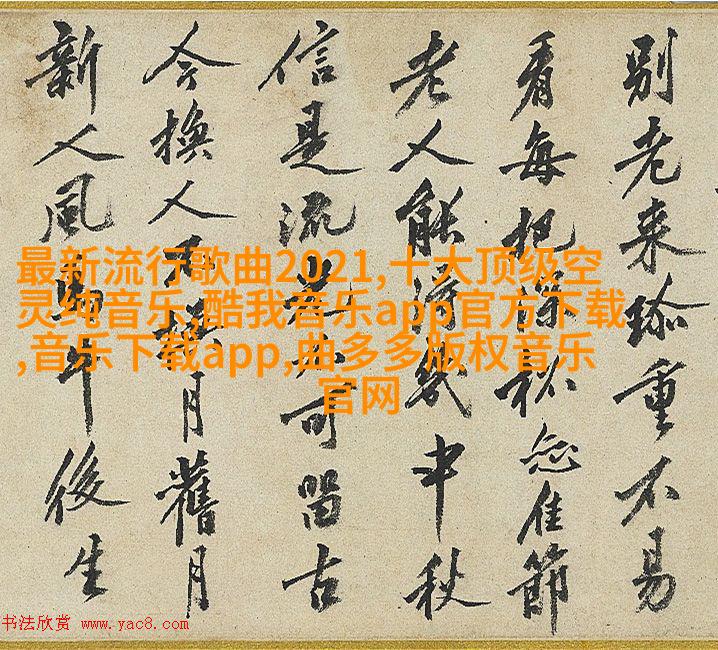 別老来珎重不易
看每把深佳節
老人能得幾中秋
信是流光不可留古
今換人不換月舊月
新人風馬牛後生
最新流行歌曲2021,十大顶级空
灵纯音乐,酷我音乐app官方下载
,音乐下载app,曲多多版权音乐
官网
书法欣赏 www.yac8.com